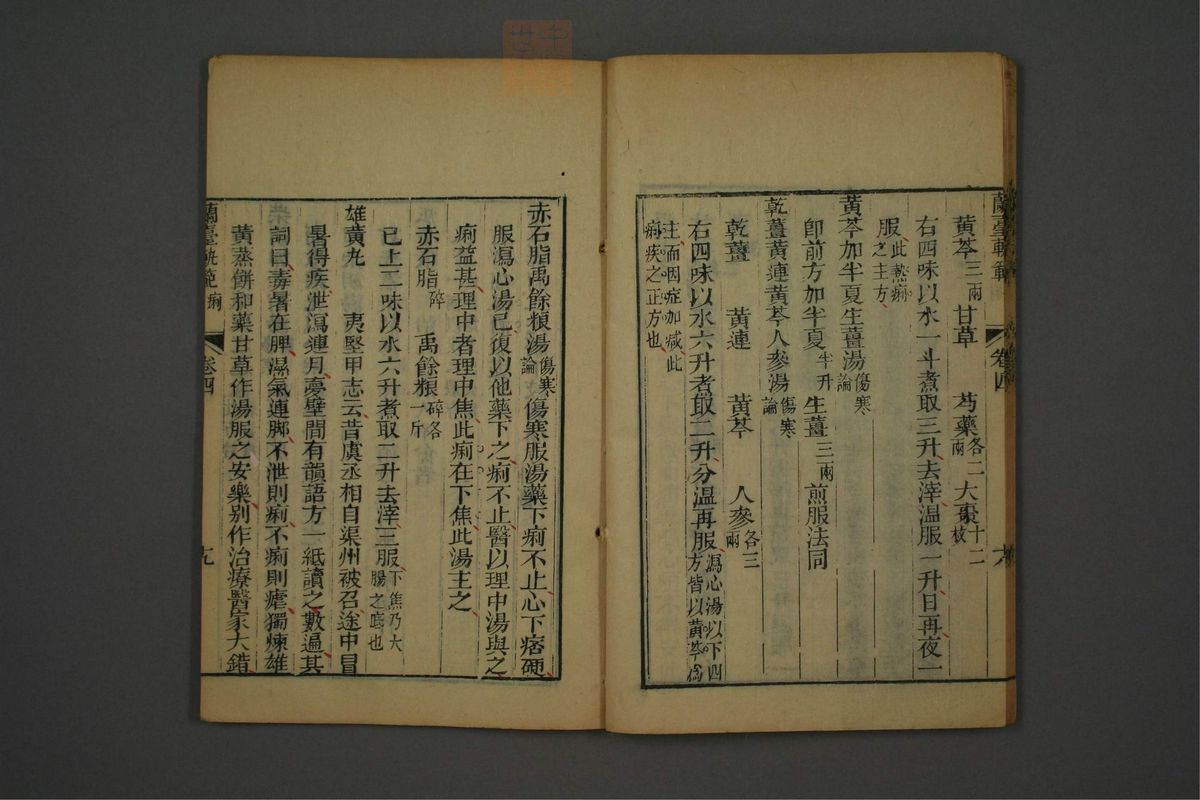 黃芩三兩 甘草 芍藥各二兩 大棗十二枚
右四味以水一斗煮取三升去滓温服一升日再夜一
服此熱痢之主方
黃芩加半夏生薑湯傷寒論
卽前方加半夏半升生薑三兩煎服法同
乾薑黃連黃芩人參湯傷寒論
乾薑 黃連 黃芩 人參各三兩
右四味以水六升煮取二升分温再服瀉心湯以下四方皆以黃芩爲
主而因症加減此痢疾之正方也
蘭臺軌範
卷四
赤石脂禹餘粮湯傷寒論傷寒服湯藥下痢不止心下痞硬
服瀉心湯已復以他藥下之痢不止醫以理中湯與之
痢益甚理中者理中焦此痢在下焦此湯主之
赤石脂碎 禹餘粮碎各一斤
已上二味以水六升煮取二升去滓三服下焦乃大腸之底也
雄黃丸 夷堅甲志云昔虞丞相自渠州被召途中冒
暑得疾泄瀉連月夢壁間有韻語方一紙讀之數遍其
詞曰毒暑在脾濕氣連脚不泄則痢不痢則瘧獨煉雄
黃蒸餅和藥甘草作湯服之安樂别作治療醫家大錯
蘭臺軌範 痢
卷四
九